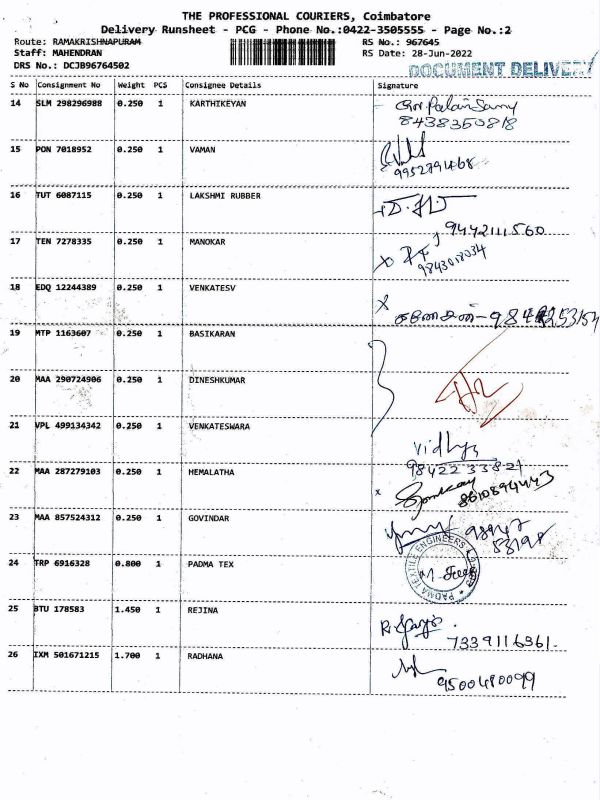 THE PROFESSIONAL COURIERS, Coimbatore
Delivery Runsheet - PCG - Phone No.:0422-3505555 - Page No.:2
Route: RAMAKRISHNAPURAM
RS No.: 967645
Staff: MAHENDRAN
RS Date: 28-Jun-2022
DRS No.: DCJB96764502
DOCUMENT DELIVERY
S No Consignment No Weight PCS Consignee Details Signature
14 SLM 298296988 0.250 1 KARTHIKEYAN
8438350818
15 PON 7018952 0.250 1 VAMAN
9952791468
16 TUT 6087115 0.250 1 LAKSHMI RUBBER
9442111560
17 TEN 7278335 0.250 1 MANOKAR
18 EDQ 12244389 0.250 1 VENKATESV
19 MTP 1163607 0.250 1 BASIKARAN
20 MAA 290724906 0.250 1 DINESHKUMAR
21 VPL 499134342 0.250 1 VENKATESWARA
Vidhya
98422 33821
22 MAA 287279103 0.250 1 HEMALATHA
8610894443
23 MAA 857524312 0.250 1 GOVINDAR
98947
53198
24 TRP 6916328 0.800 1 PADMA TEX
PADMA TEXTILE ENGINEERS
25 BTU 178583 1.450 1 REJINA
7339116361.
26 IXM 501671215 1.700 1 RADHANA
9500480099